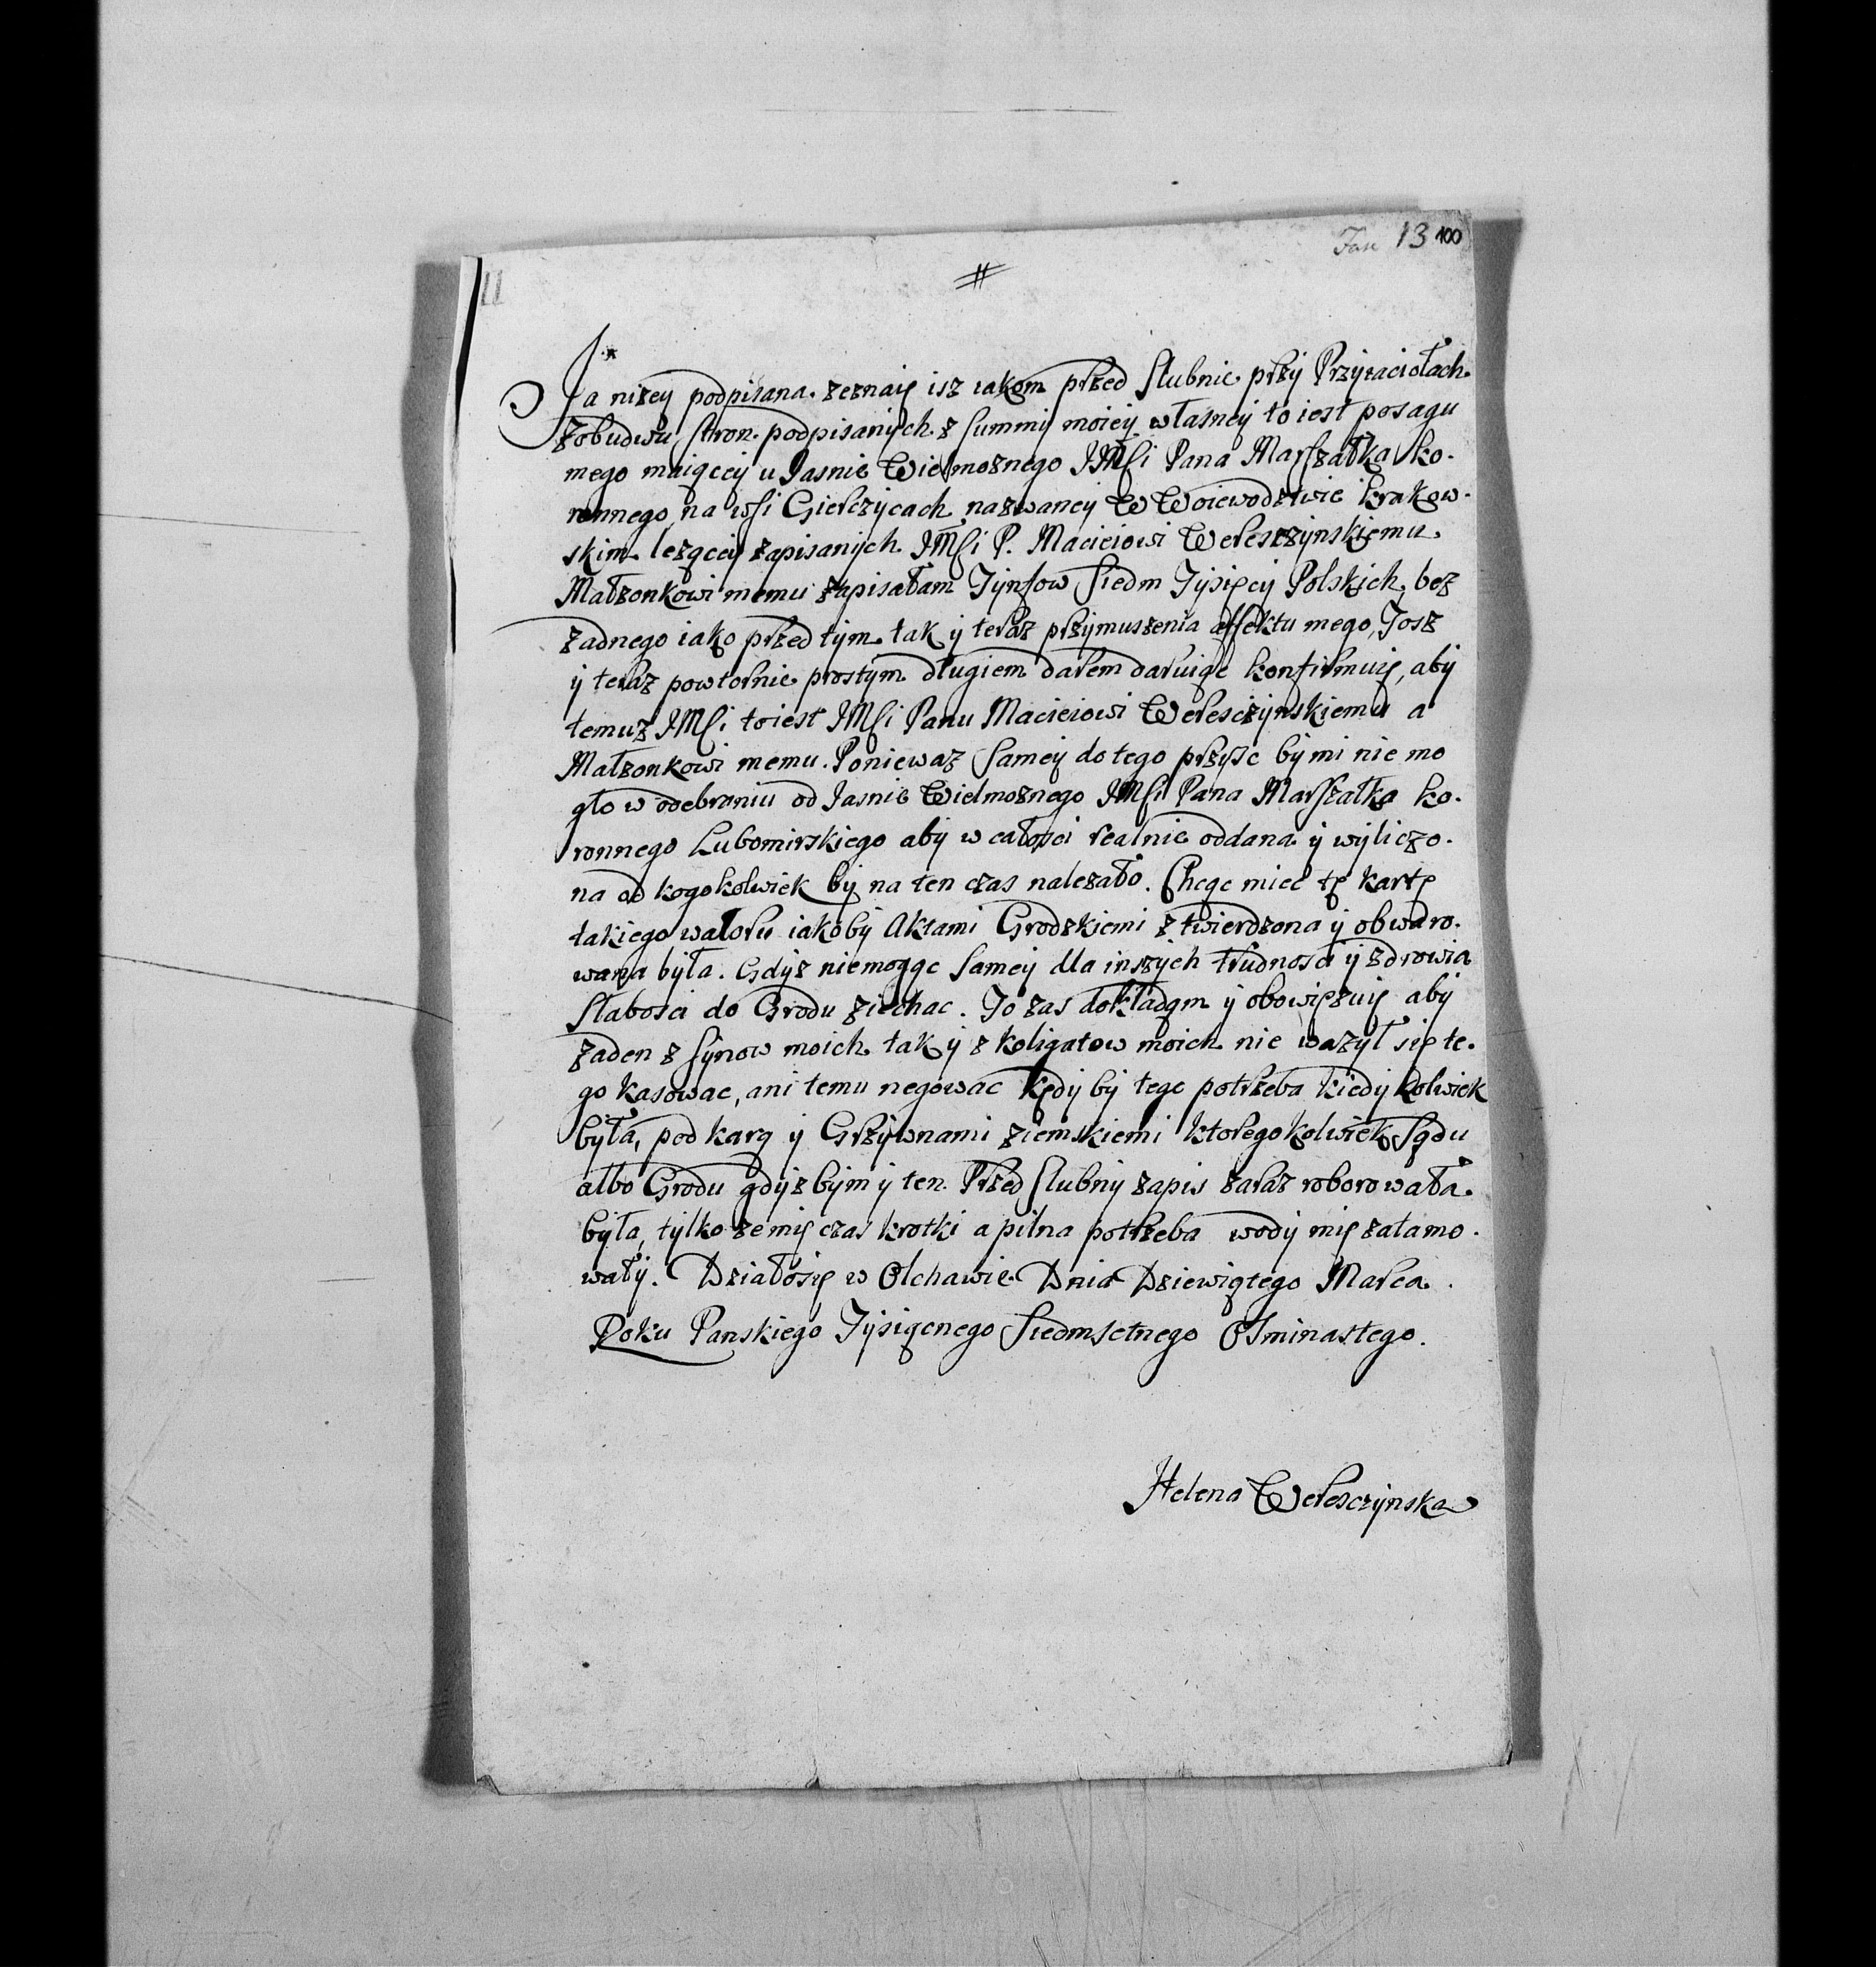 Jan 13 100
11
#
Ja nizey podpisana. zeznaię isz iakom przed slubnie przy Przyiaciołach
zobudwu stron. podpisanych. z summy moiey własney to iest posagu
mego maiącey u Jasnie Wielmoznego JMSi Pana Marszałka ko.
ronnego na wsi Gielczycach nazwaney W Woiewodztwie krakow.
skim lezącey zapisanych JMSi P. Macieiowi Weresczynskiemu.
Małzonkowi memu zapisałam Tynfow Siedm Tysięcy Polskich, bez
zadnego iako przed tym. tak y teraz przymuszenia affektu mego, Tosz
y teraz powtornie prostym długiem darem daruiąc konfirmuię, aby
temuz JMSi toiest JMSi Panu Macieiowi Weresczynskiemu a
Małzonkowi memu. Poniewaz samey do tego przyść by mi nie mo
gło w odebraniu od Jasnie Wielmoznego JMSi Pana Marszałka ko.
ronnego Lubomirskiego aby w całosci realnie oddana y wyliczo.
na od kogokolwiek by na ten czas nalezało. Chcąc miec tę kartę
takiego waloru iakoby Aktami Grodzkiemi ztwierdzona y obwaro.
wana była. Gdyz niemogąc samey dla inszych trudnosci y zdrowia
słabosci do Grodu ziechac. To zas dokładam y obowięzuię aby
zaden z synow moich tak y z koligatow moich nie wazył się te.
go kasowac, ani temu negowac kędy by tego potrzeba kiedy kolwiek
była, pod karą y Grzywnami ziemskiemi ktoregokolwiek Sądu
albo Grodu gdyz bym y ten. Przed slubny zapis zaraz roborowała.
była, tylko ze mię czas krotki a pilna potrzeba wody mię zatamo.
wały. Działosię w Olchawie Dnia Dziewiątego Marca.
Roku Panskiego Tysiącnego Siedmsetnego Osminastego.
Helena Weresczynska